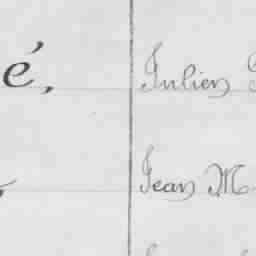 é, Julien
Jean M